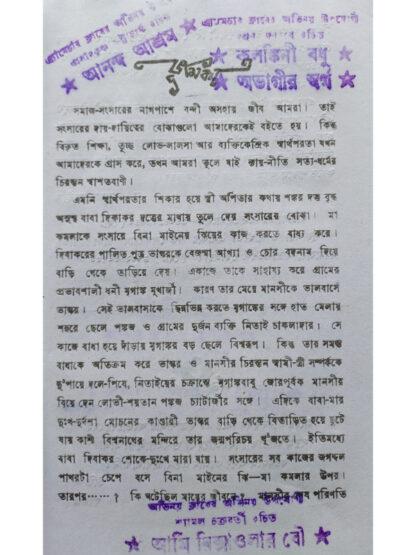 এ্যামেচার ক্লাবের অভিনয় উপযোগী
আনন্দ আশ্রম
এ্যামেচার ক্লাবের অভিনয় উপযোগী
কলঙ্কিনী বধূ
অভাগীর স্বর্গ
ভূমিকা
সমাজ-সংসারের নাগপাশে বন্দী অসহায় জীব আমরা। তাই
সংসারের দায়-দায়িত্বের বোঝাগুলো আমাদেরকেই বইতে হয়। কিন্তু
বিকৃত শিক্ষা, তুচ্ছ লোভ-লালসা আর ব্যক্তিকেন্দ্রিক স্বার্থপরতা যখন
আমাদেরকে গ্রাস করে, তখন আমরা ভুলে যাই ন্যায়-নীতি সত্য-ধর্মের
চিরন্তন শাশ্বতবাণী।
এমনি স্বার্থপরতার শিকার হয়ে স্ত্রী অপিতার কথায় পঙ্কজ দত্ত বৃদ্ধ
অসুস্থ বাবা দিবাকর দত্তের মাথায় তুলে দেয় সংসারের বোঝা। মা
কমলাকে সংসারে বিনা মাইনের ঝিয়ের কাজ করতে বাধ্য করে।
দিবাকরের পালিত পুত্র ভাস্করকে বেজন্মা আখ্যা ও চোর বদনাম দিয়ে
বাড়ি থেকে তাড়িয়ে দেয়। একাজে তাকে সাহায্য করে গ্রামের
প্রভাবশালী ধনী মৃগাঙ্ক মুখার্জী। কারণ তার মেয়ে মানসীকে ভালবাসে
ভাস্কর। সেই ভালবাসাকে ছিন্নভিন্ন করতে মৃগাঙ্কের সঙ্গে হাত মেলায়
শহরে ছেলে পঙ্কজ ও গ্রামের দুর্জন ব্যক্তি নিতাই চাকলাদার। সে
কাজে বাধা হয়ে দাঁড়ায় মৃগাঙ্কর বড় ছেলে বিশ্বরূপ। কিন্তু তার সমস্ত
বাধাকে অতিক্রম করে ভাস্কর ও মানসীর চিরন্তন স্বামী-স্ত্রী সম্পর্ককে
দু'পায়ে দলে-পিষে, নিতাইয়ের চক্রান্তে মৃগাঙ্কবাবু জোরপূর্বক মানসীর
বিয়ে দেন লোভী-শয়তান পঙ্কজ চ্যাটার্জীর সঙ্গে। এদিকে বাবা-মার
দুঃখ-দুর্দশা মোচনের কাণ্ডারী ভাস্কর বাড়ি থেকে বিতাড়িত হয়ে ছুটে
যায় কাশী বিশ্বনাথের মন্দিরে তার জন্মপরিচয় খুঁজতে। ইতিমধ্যে
বাবা দিবাকর শোকে-দুঃখে মারা যায়। সংসারের সব কাজের জগদ্দল
পাথরটা চেপে বসে বিনা মাইনের ঝি—মা কমলার উপর।
তারপর……? কি ঘটেছিল মায়ের জীবনে? মানসীর শেষ পরিণতি
অভিনয় ক্লাবের অভিনয় উপযোগী
শ্যামল চক্রবর্তী রচিত
আমি রিক্সাওলার বৌ